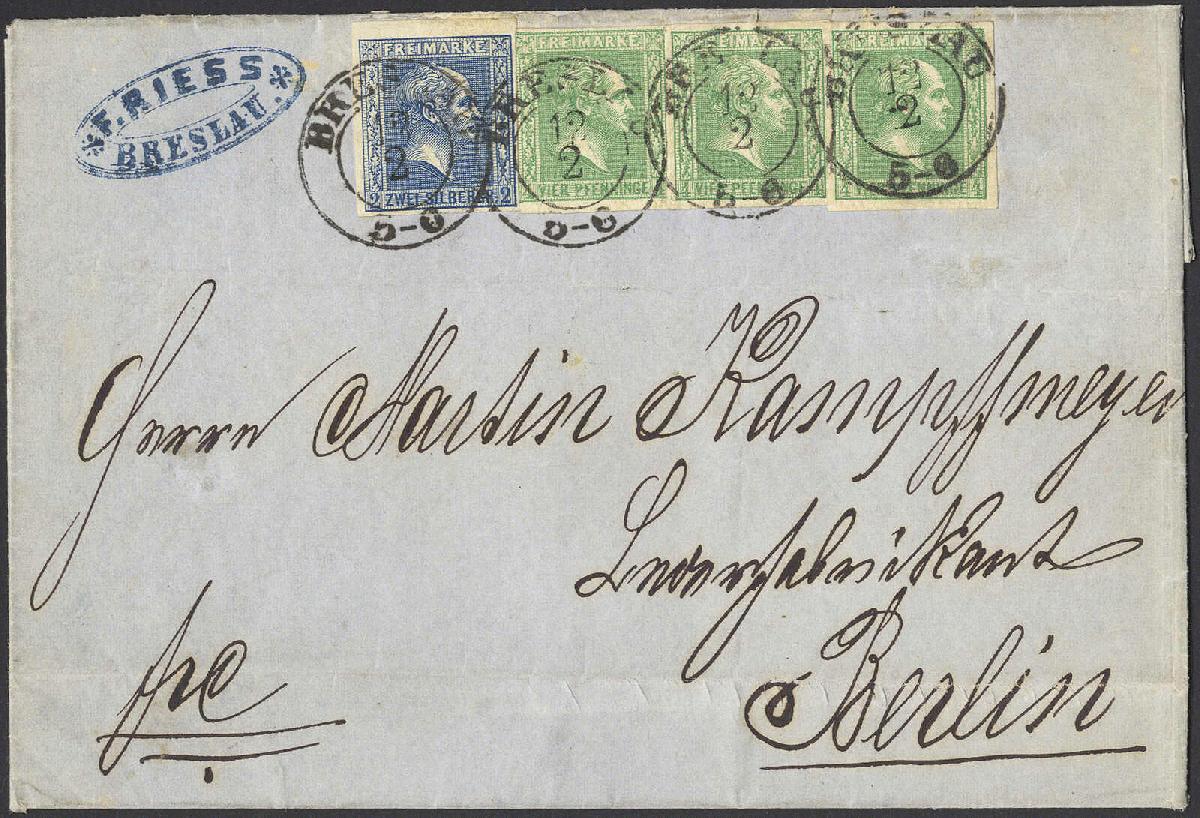 * F. RIESS *
BRESLAU.
FREIMARKE FREIMARKE FREIMARKE FREIMARKE
BRESLAU BRESLAU BRESLAU BRESLAU
12 12 12
2 2 2 2
2 ZWEI SILBERGR. 2 VIER PFENNINGE VIER PFENNINGE 4
5-6 5-6 5-6 5-6
Herrn Martin Kampffmeyer
Lederfabrikant
frc
Berlin